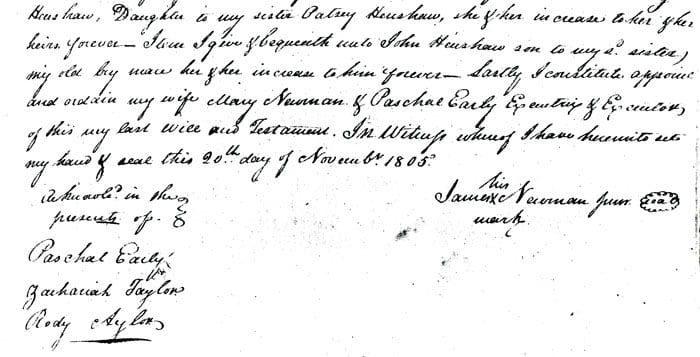 Henshaw, Daughter to my sister Patsey Henshaw, she & her increase to her & her
heirs forever — Item I give & bequeath unto John Henshaw son to my sd. sister,
my old bay mare her & her increase to him forever — Lastly I constitute appoint
and ordain my wife Mary Newman & Paschal Early Executrix & Executor,
of this my last Will and Testament. In Witness whereof I have hereunto set
my hand & seal this 20th day of Novembr. 1805.
Acknowld. in the
presents of.
his
James x Newman junr. Seal
mark
Paschal Early
Zachariah Taylor
Rody Aylor